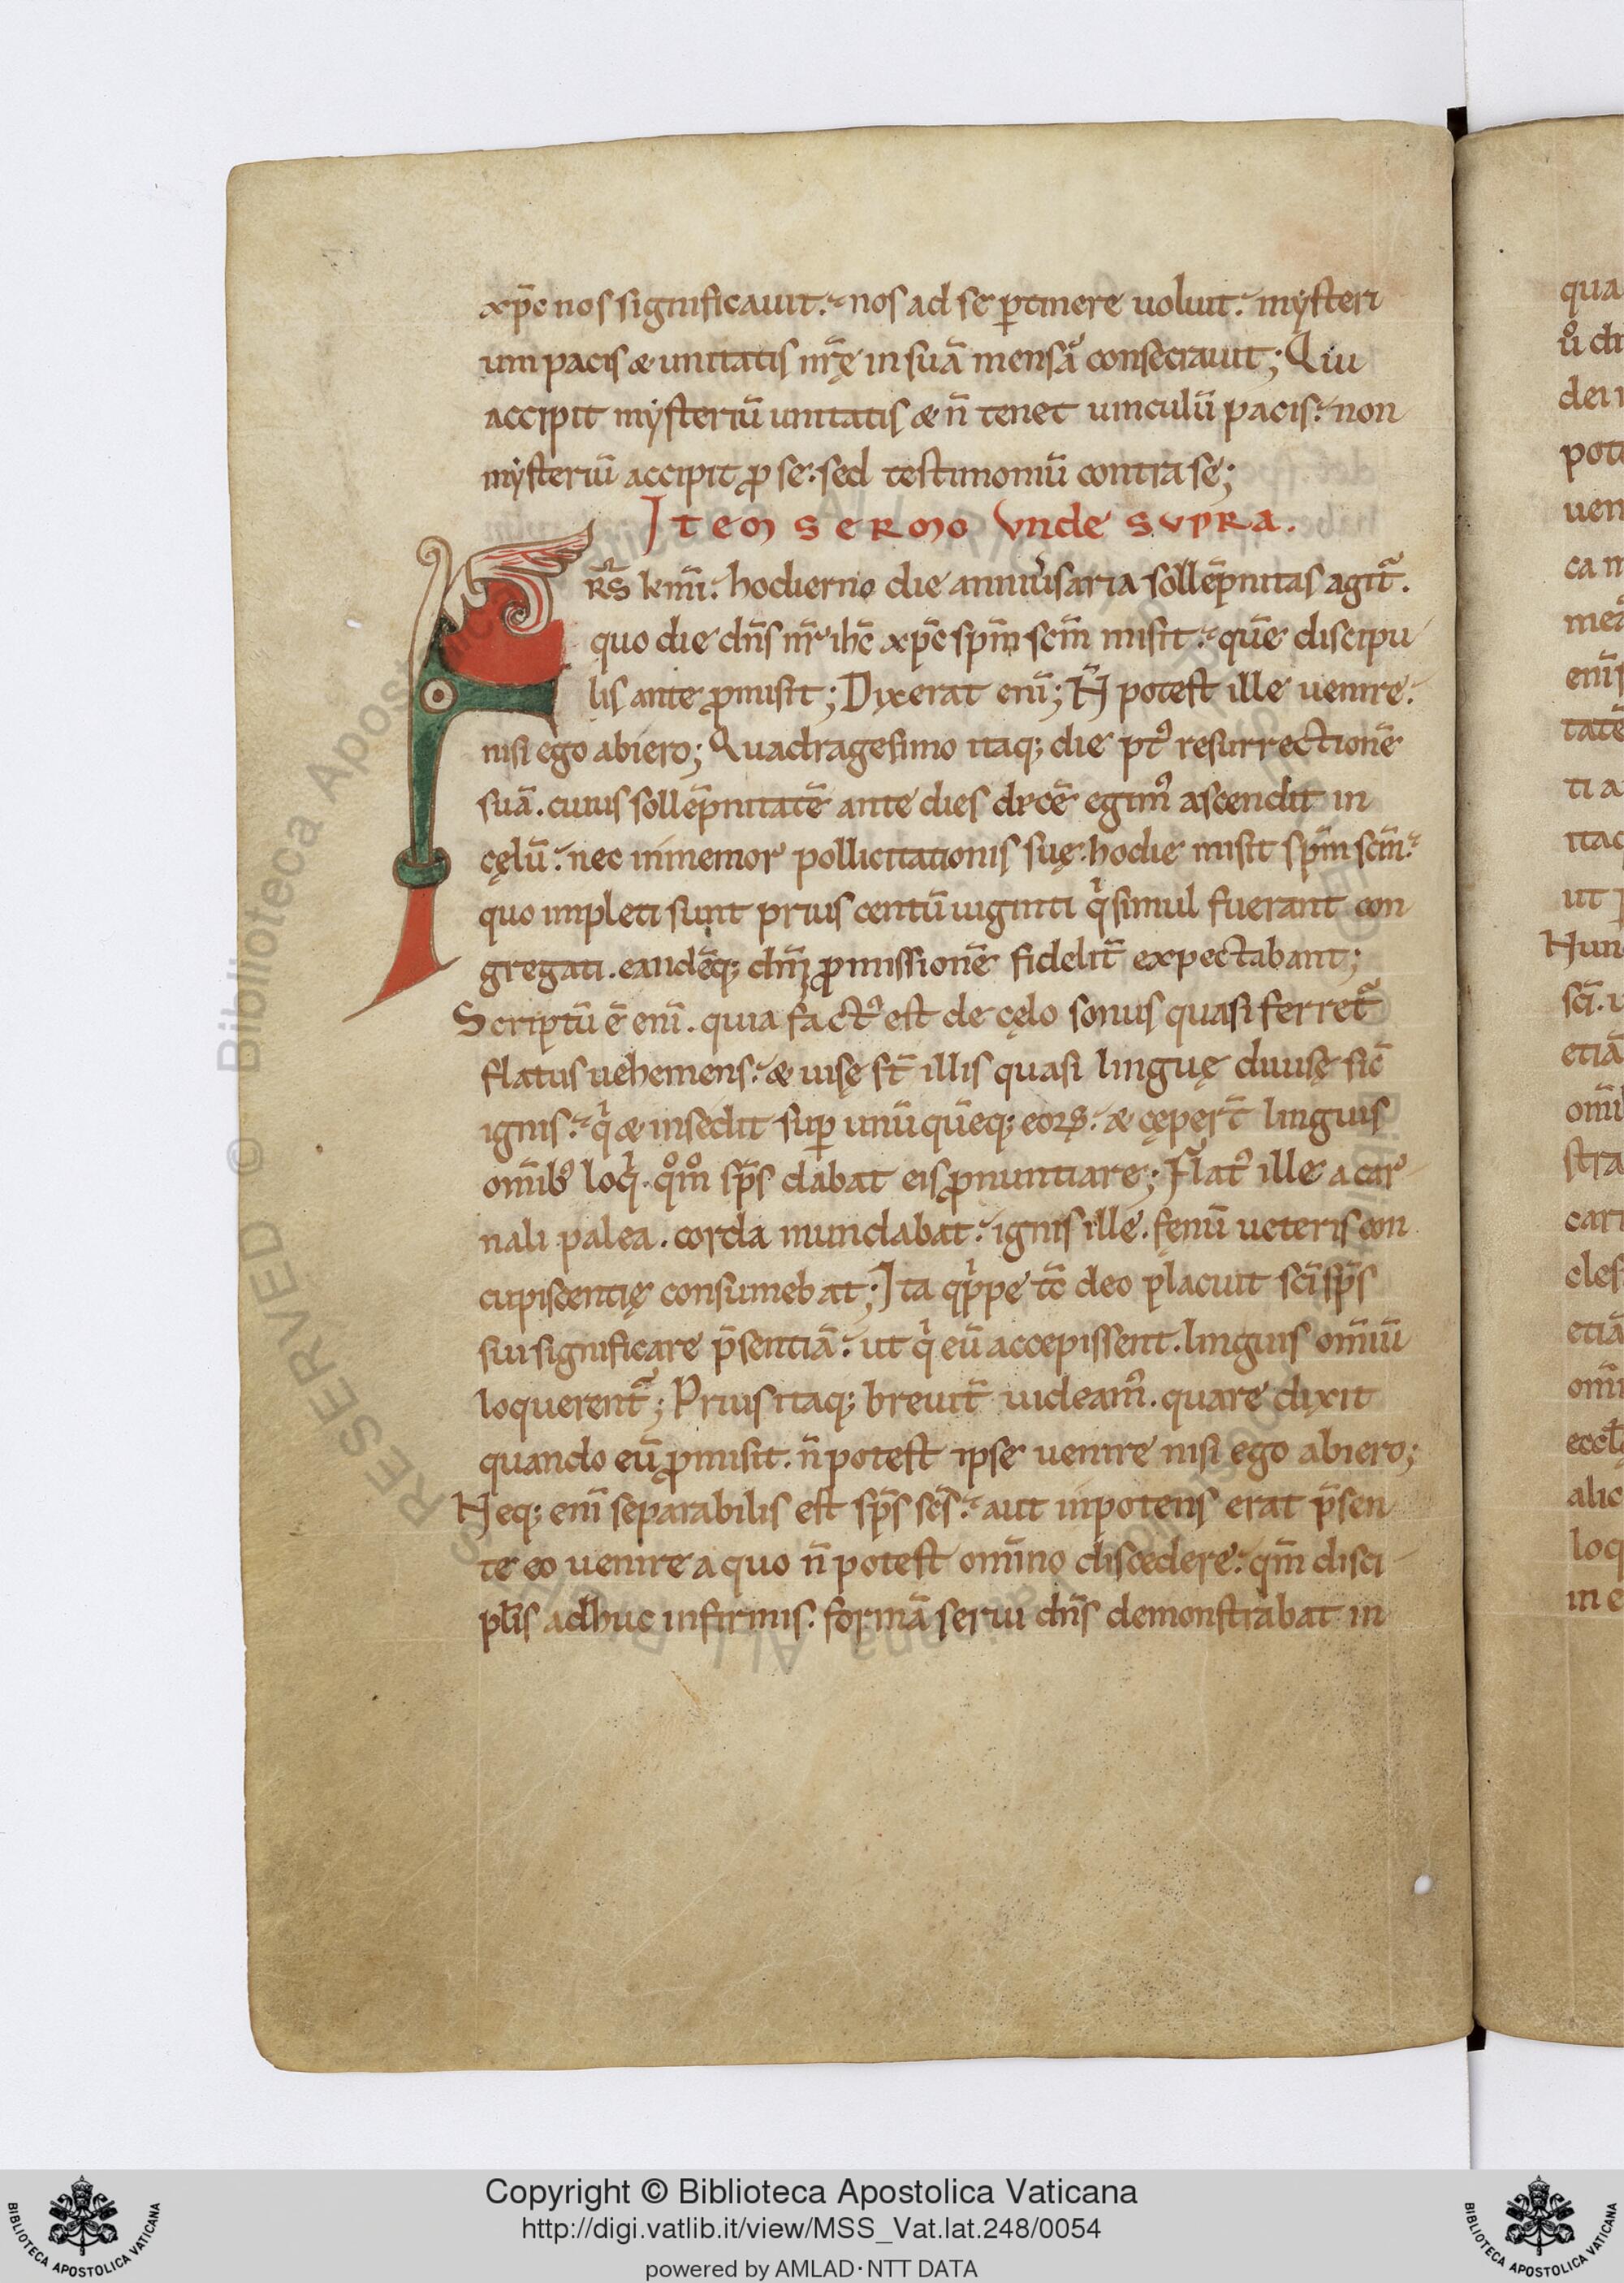 xp̄c nos significauit. nos ad se ꝑtinere uoluit. mẏsteri
um pacis & unitatis nr̄ę in suā mensā consecrauit; Qui
accipit mẏsteriū unitatis & n̄ tenet uinculū pacis. non
mẏsteriū accipit ꝓ se. sed testimoniū contra se;
Item sermo vnde supra.
FRS̄ km̄i. hodierno die anniũsaria sollēpnitas agit᷑.
quo die dn̄s nr̄ ihc̄ xp̄c sp̄m sc̄m misit. quē discipu
lis ante ꝓmisit; Dixerat eni̅; N̄ potest ille uenire.
nisi ego abiero; Quadragesimo itaq; die pt᷒ resurrectionē
suā. cuius sollēpnitatē ante dies decē egim᷒ ascendit in
cęlū. nec inmemor pollicitationis suę. hodie misit sp̄m sc̄m.
quo impleti sunt prius centū uiginti qͥ simul fuerant con
gregati. eandēq; dn̄icā ꝓmissionē fidelit̄ expectabant;
Scriptū ē eni̅. quia fact᷒ est de cęlo sonus quasi ferret᷑
flatus uehemens. & uisę st̄ illis quasi linguę diuisę sic̄
ignis. qͥ & insedit suꝑ unūquēq; eoꝝ. & cęper̄t linguis
om̄ib᷒ loqͥ. qͦm̊ sp̄s dabat eis ꝓnuntiare; Flat᷒ ille a car
nali palea. corda mundabat. ignis ille. fenū ueteris con
cupiscentię consumebat; Ita qͥppe tc̄ deo placuit sc̄i sp̄s
sui significare p̄sentiā. ut qͥ eū accepissent. linguis om̄iū
loquerent᷑; Prius itaq; breuit̄ uideam᷒. quare dixit
quando eū ꝓmisit. n̄ potest ipse uenire nisi ego abiero;
Neq; eni̅ separabilis est sp̄s sc̄s. aut inpotens erat p̄sen
te eo uenire a quo n̄ potest om̄ino discedere. qm̄ disci
pl̄is adhuc infirmis. formā serui dn̄s demonstrabat in
Copyright © Biblioteca Apostolica Vaticana
http://digi.vatlib.it/view/MSS_Vat.lat.248/0054
powered by AMLAD·NTT DATA
BIBLIOTECA APOSTOLICA VATICANA
BIBLIOTECA APOSTOLICA VATICANA